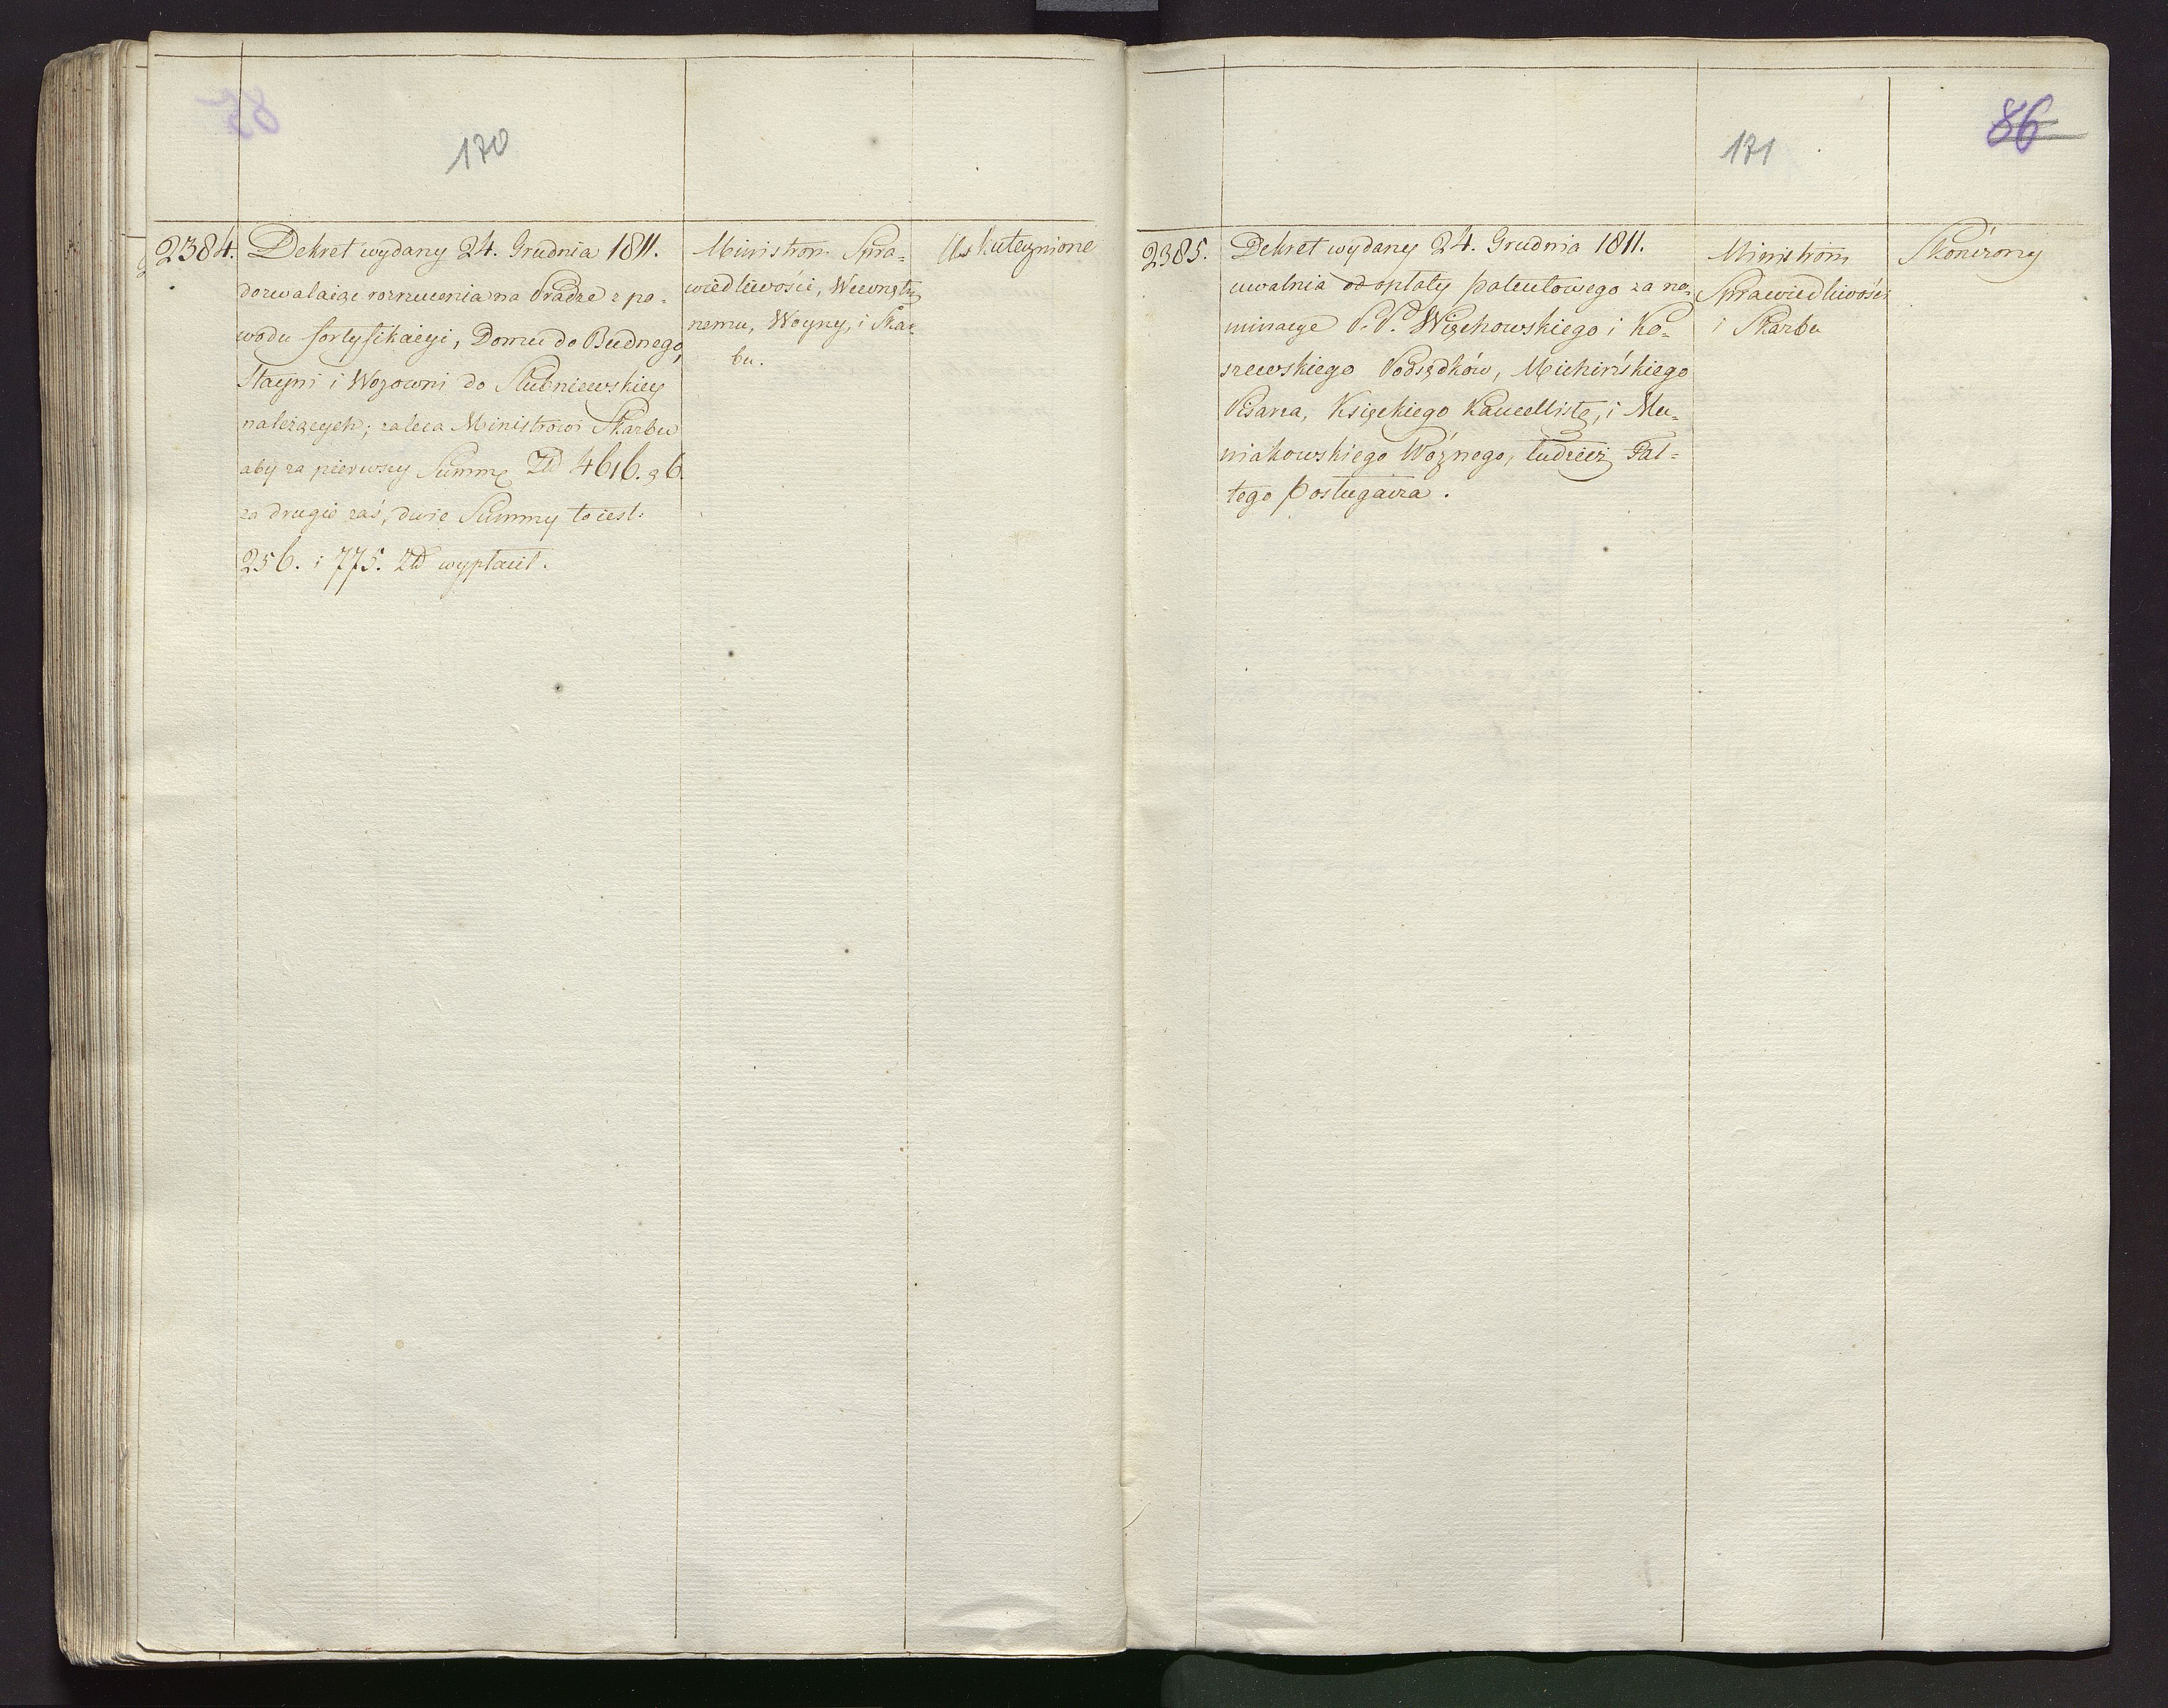 170
2384. Dekret wydany 24. Grudnia 1811.
dozwalaiąc rozrzucenia na Pradze z po-
wodu fortyfikacyi, Domu do Budnego,
Stayni i Wozowni do Słubniewskiey
należących; zaleca Ministrowi Skarbu
aby za pierwszy Summę Złł 4616. g 6.
za drugie zaś, dwie Summy to iest:
256. i 775. Złł wypłacił.
Ministrom Spra-
wiedliwości, Wewnętrz
nemu, Woyny, i Skar-
bu.
Uskutecznione
171
86
2385. Dekret wydany 24. Grudnia 1811.
uwalnia od opłaty patentowego za no-
minacye P. P. Więchowskiego i Ko-
szewskiego Podsędków, Michińskiego
Pisarza, Księckiego Kancellistę, i Mu-
niakowskiego Woźnego, tudzież Pal-
tego posługacza.
Ministrom
Sprawiedliwości
i Skarbu
Skończony